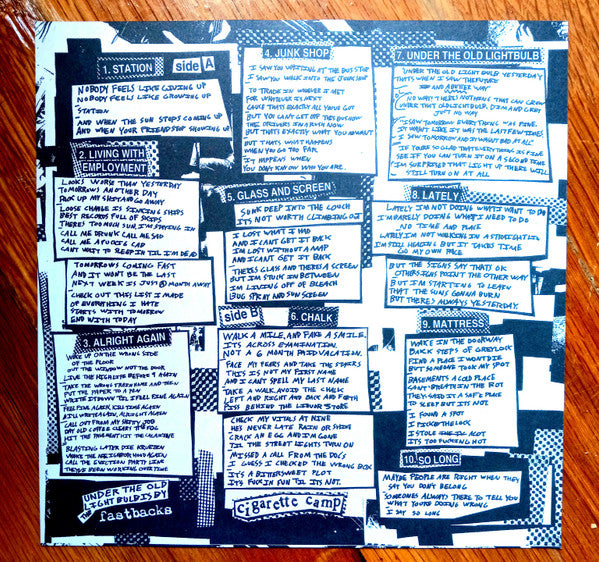 1. STATION
side A
NOBODY FEELS LIKE GIVING UP
NOBODY FEELS LIKE GROWING UP
STATION
AND WHEN THE SUN STOPS COMING UP
AND WHEN YOUR FRIENDS STOP SHOWING UP
2. LIVING WITH
EMPLOYMENT
LOOKS WORSE THAN YESTERDAY
TOMORROWS ANOTHER DAY
PACK UP MY SHIT AND GO AWAY
LOOSE CHANGE IS SINKING SHIPS
BEST RECORDS FULL OF SKIPS
THERES TOO MUCH SUN, I'M STAYING IN
CALL ME DRUNK CALL ME SAD
CALL ME A FUCKING CAB
CANT WAIT TO SLEEP IN TIL I'M DEAD
TOMORROWS COMING FAST
AND IT WONT BE THE LAST
NEXT WEEK IS JUST A MONTH AWAY
CHECK OUT THIS LIST I MADE
OF EVERYTHING I HATE
STARTS WITH TOMORROW
END WITH TODAY
3. ALRIGHT AGAIN
WOKE UP ON THE WRONG SIDE
OF THE FLOOR
OUT THE WINDOW NOT THE DOOR
LIVE THE HIGH LIFE BEFORE 9 AGAIN
TAKE THE WRONG TREN HOME AND THEN
PUT THE PAPER TO A PEN
WRITE IT DOWN TIL I FEEL FINE AGAIN
FEELING ALRIGHT, KILL TIME AGAIN
ALRIGHT AGAIN
CALL OUT FROM MY SHITTY JOB
DAY OLD COFFEE CLEAR THE FOG
HIT THE PAVEMENT
BLASTING LATER DIE KREUZEN
WAKE THE NEIGHBORHOOD AGAIN
CALL THE EVICTION PARTY LINE
THEYVE BEEN WORKING OVERTIME
UNDER THE OLD
LIGHTBULB IS BY
THE fastbacks
4. JUNK SHOP
I SAW YOU WAITING AT THE BUS STOP
I SAW YOU WALK INTO THE JUNK SHOP
TO TRADE IN WHATEVER IT GET
FOR WHATEVER IS NEXT
CAUSE THATS EXACTLY ALL YOU'VE GOT
BUT YOU CANT GET OFF THIS BUS NOW
THE DRIVERS IN A RUSH NOW
BUT THATS EXACTLY WHAT YOU WANT
BUT THATS WHAT HAPPENS
WHEN YOU GO TOO FAR
IT HAPPENS WHEN
YOU DONT KNOW WHO YOU ARE.
5. GLASS AND SCREEN
SUNK DEEP INTO THE COUCH
ITS NOT WORTH CLIMBING OUT
I LOST WHAT I HAD
AND I CANT GET IT BACK
I'M LOST WITHOUT A MAP
AND I CANT GET IT BACK
THERES GLASS AND THERES A SCREEN
BUT IM STUCK IN BETWEEN
IM LIVING OFF OF BLEACH
BUG SPRAY AND SUN SCREEN
side B
6. CHALK
WALK A MILE, AND FAKE A SMILE.
ITS ACROSS EXAMINATION.
NOT A 6 MONTH PAID VACATION.
FACE MY FEARS AND TAKE THE STAIRS
THIS IS NOT MY FIRST HOME
AND I CANT SPELL MY LAST NAME
TAKE A WALK AVOID THE CHALK
LEFT AND RIGHT AND BACK AND FORTH
PISS BEHIND THE LIQUOR STORE
CHECK MY VITALS AT NINE
HE'S NEVER LATE RAIN OR SHINE
CRACK AN EGG AND IM GONE
TIL THE STREET LIGHTS TURN ON
I MISSED A CALL FROM THE DOCS
I GUESS I CHECKED THE WRONG BOX
IT'S A BITTERSWEET PLOT
ITS FUCKIN SUN TIL ITS NOT.
cigarette camp
7. UNDER THE OLD LIGHTBULB
UNDER THE OLD LIGHT BULB YESTERDAY
THATS WHEN I SAW THE FUTURE
AND A BETTER WAY
NO WAY THERES NOTHING THAT CAN GROW
UNDER THAT OLD LIGHT BULB, DIM AND GRAY
JUST NO WAY
I SAW TOMORROW EVERYTHING WAS FINE.
IT WASNT LIKE IT WAS THE LAST FEW TIMES
I SAW TOMORROW AND IT WASNT BAD AT ALL
IF YOU'RE SO GLAD THAT EVERYTHING IS FINE
SEE IF YOU CAN TURN IT ON A SECOND TIME
IM SURPRISED THAT LIGHT UP THERE WILL
STILL TURN ON AT ALL
8. LATELY
LATELY IM NOT DOING WHAT I WANT TO DO
IM BARELY DOING WHAT I NEED TO DO
NO TIME AND PLACE
LATELY IM NOT WALKING IN A STRAIGHT LINE
IM STILL HEALING BUT IT TAKES TIME
GO MY OWN PACE
BUT THE SIGNS SAY THATS OK
OTHER SIGNS POINT THE OTHER WAY
BUT IM STARTING TO LEARN
THAT THE SUNS GONNA BURN
BUT THERES ALWAYS YESTERDAY.
9. MATTRESS
WAKE IN THE DOORWAY
BACK STEPS OF GREYLOCK
FIND A PLACE I WONT DIE
BUT SOMEONE TOOK MY SPOT
BASEMENTS A COLD PLACE
CANT BREATH IN THE ROT
THEY SAID ITS A SAFE PLACE
TO KEEP BUT ITS NOT
I FOUND A SPOT
I PICKED THE LOCK
I STOLE THE COT
ITS TOO FUCKING HOT
10. SO LONG
MAYBE PEOPLE ARE RIGHT WHEN THEY
SAY YOU DON'T BELONG
SOMEONES ALWAYS THERE TO TELL YOU
WHAT YOU'RE DOING WRONG
I SAY SO LONG